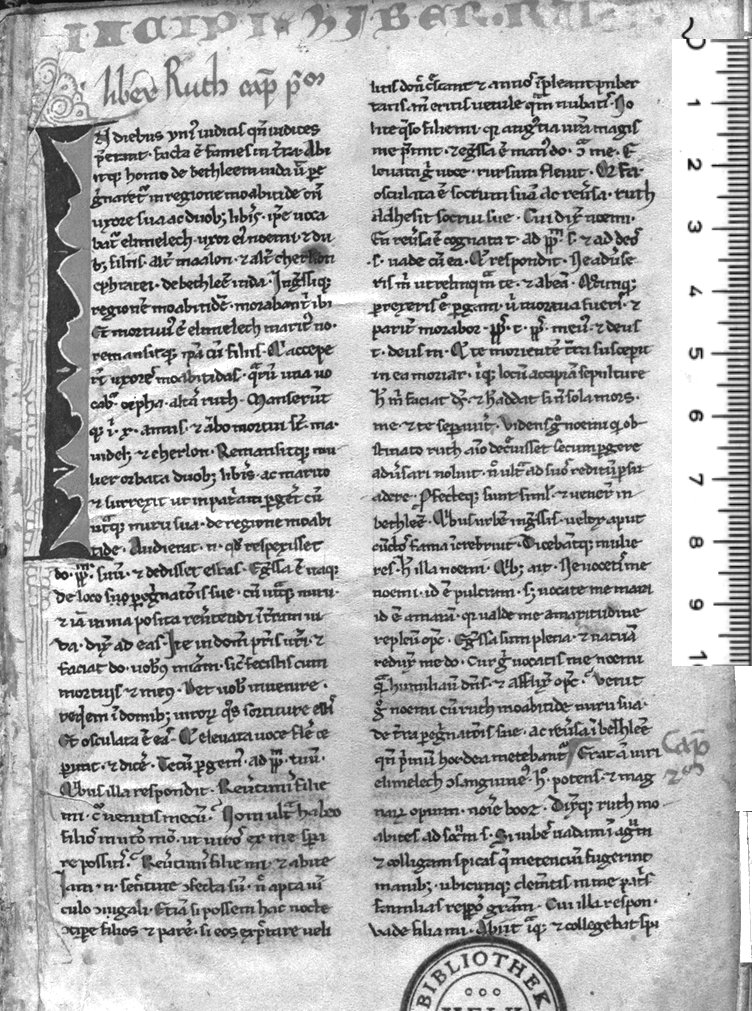 INCIPIT LIBER RUT
liber Ruth cap̄ pᵒm
IN diebus unius iudicis qn̄ iudices
p̄erant. facta ē fames in t̄ra. Abi
itq; homo de bethleem iuda ut pe
g̊naret᷒ in regione moabitide cū
uxore sua ac duob; lib̄is. ip̄e uoca
bat᷒ elimelech. uxor eī noemi. ⁊ du
b; filiis. alt᷒ maalon. ⁊ alt᷒ chethlon
ephratei. de bethleē iuda. Inḡssiq;
regionē moabitidē. morabant᷒ ibi
Et mortuus ē elimelech marit᷒ no.
remansitq; ip̄a cū filiis. Q̇ accepe
rt̄ uxores moabitidas. q̄rū una uo
cab᷒. orpha. alt̄a ruth. Manserūt
q; i. x. annis. ⁊ ābo mortui st̄. ma.
uidel; ⁊ chelon. Remansitq; mu
lier orbata duob; lib̄is. ac marito
⁊ surrexit ut in pat̄am p̄get cū
ut᷒q; nuru sua. de regione moabi
tide. Audierat. n. qd̄ respexisset
do. pp̄lm. suū. ⁊ dedisset escas. Eḡssa ē itaq;
de loco suo peg̊natōis sue. cū ut᷒q; nuru.
⁊ iā in uia posita reu̅tendi in t̄ram iu
da. dix̄ ad eas. Ite in domū matris ur̄e. ⁊
faciat do. uob᷒ miām. sic̄ fecistis cum
mortuis ⁊ mecū. Det uob᷒ inuenire.
requiem ī domib; uiroꝝ q̄s sortiture estis
Et osculata ē eas. Q̇ eleuata uoce fle̅ ce
per̅t. ⁊ dice̅. Tecū pergem᷒. ad pp̄lm. tuū.
Quib᷒ illa respondit. Reu̅timini filie
mi. cur uenitis mecū. Num ult᷒ habeo
filios in ut̅o mō. ut uiros ex me spe
rare possitis. Reu̅timini filie mi. ⁊ abite
Iam. n. senectute cfecta sū. n̄ apta uī
culo ɔiugali. Etiā si possem hac nocte
ɔcipe filios ⁊ pare̅. si eos exp̄ctare ueli
tis don̄ c̄scant ⁊ annos ī̅pleant puber
tatis. an̄ eritis uetule q̄m nubatis. No
lite q̄so filie mi. qꝛ angustia ur̄a magis
me p̄mit. ⁊ eḡssa ē man᷒ do. ɔ̄ me. E
leuata g̊ uoce. rursum fleuit. Orpha
osculata ē socrum suā ac reu̅sa. ruth
adhesit socrui sue. Cui dix̄ noemi.
En reu̅sa ē cognata t. ad pp̄lm. s. ⁊ ad deos
.s. uade cū ea. Q̄ respondit. Ne adu̅se
ris m̄ ut relinquā te. ⁊ abeā. Quocūq;
perrexeris pergam. ubi morata fueris. ⁊
parit̄ morabor. pp̄ls. t. pp̄ls. meus. ⁊ deus
t. deus m. Q̄ te moriente t̄ra susceperit
in ea moriar. ibiq; locū accipiā sepulture
h̄ m̄ faciat ds̄. ⁊ h̄ addat si n̄ sola mors.
me ⁊ te separauit. Videns g̊ noemi q ob
stinato ruth. aīo dec̄uisset secum pergere
adu̅sari noluit. n̄ ult᷒ ad suos reditum p̄su
adere. Profecteq; sunt simul. ⁊ uener̄t in
bethleē. Quib᷒ urbē inḡssis. uelox aput
cūctos fama icrebruit. Dicebātq; mulie
res. h̄ illa noemi. Quib; ait. Ne uocetis me
noemi. id ē pulcram. s; uocate me mara
id ē amarā. qꝛ ualde me amaritudine
repleuit opc̄. Eḡssa sum plena. ⁊ uacuā
reduxit me do. Cur g̊ uocatis me noemi
q̄m humiliauit dn̄s. ⁊ afflixit opc̄. Venit
g̊ noemi cū ruth moabitide nuru sua.
de t̄ra peg̊natōis sue. ac reu̅sa ī bethleē
qn̄ p̄mū hordea metebant᷒. Erat aū uiri
elimelech ɔsanguine᷒. hō. potens. ⁊ mag
naꝝ opum. noīe booz. Dixitq; ruth mo
abites ad socrum s. Si iubes uadam ī agrum
⁊ colligam spicas q̄ metencium fugerint
manib; ubicunq; clementis in me patris
familias reppero gratiam. Cui illa respon.
Vade filia mi. Abiit itaq; ⁊ collegebat spi
Cap̄
2m
0
1
2
3
4
5
6
7
8
9
BIBLIOTHEK